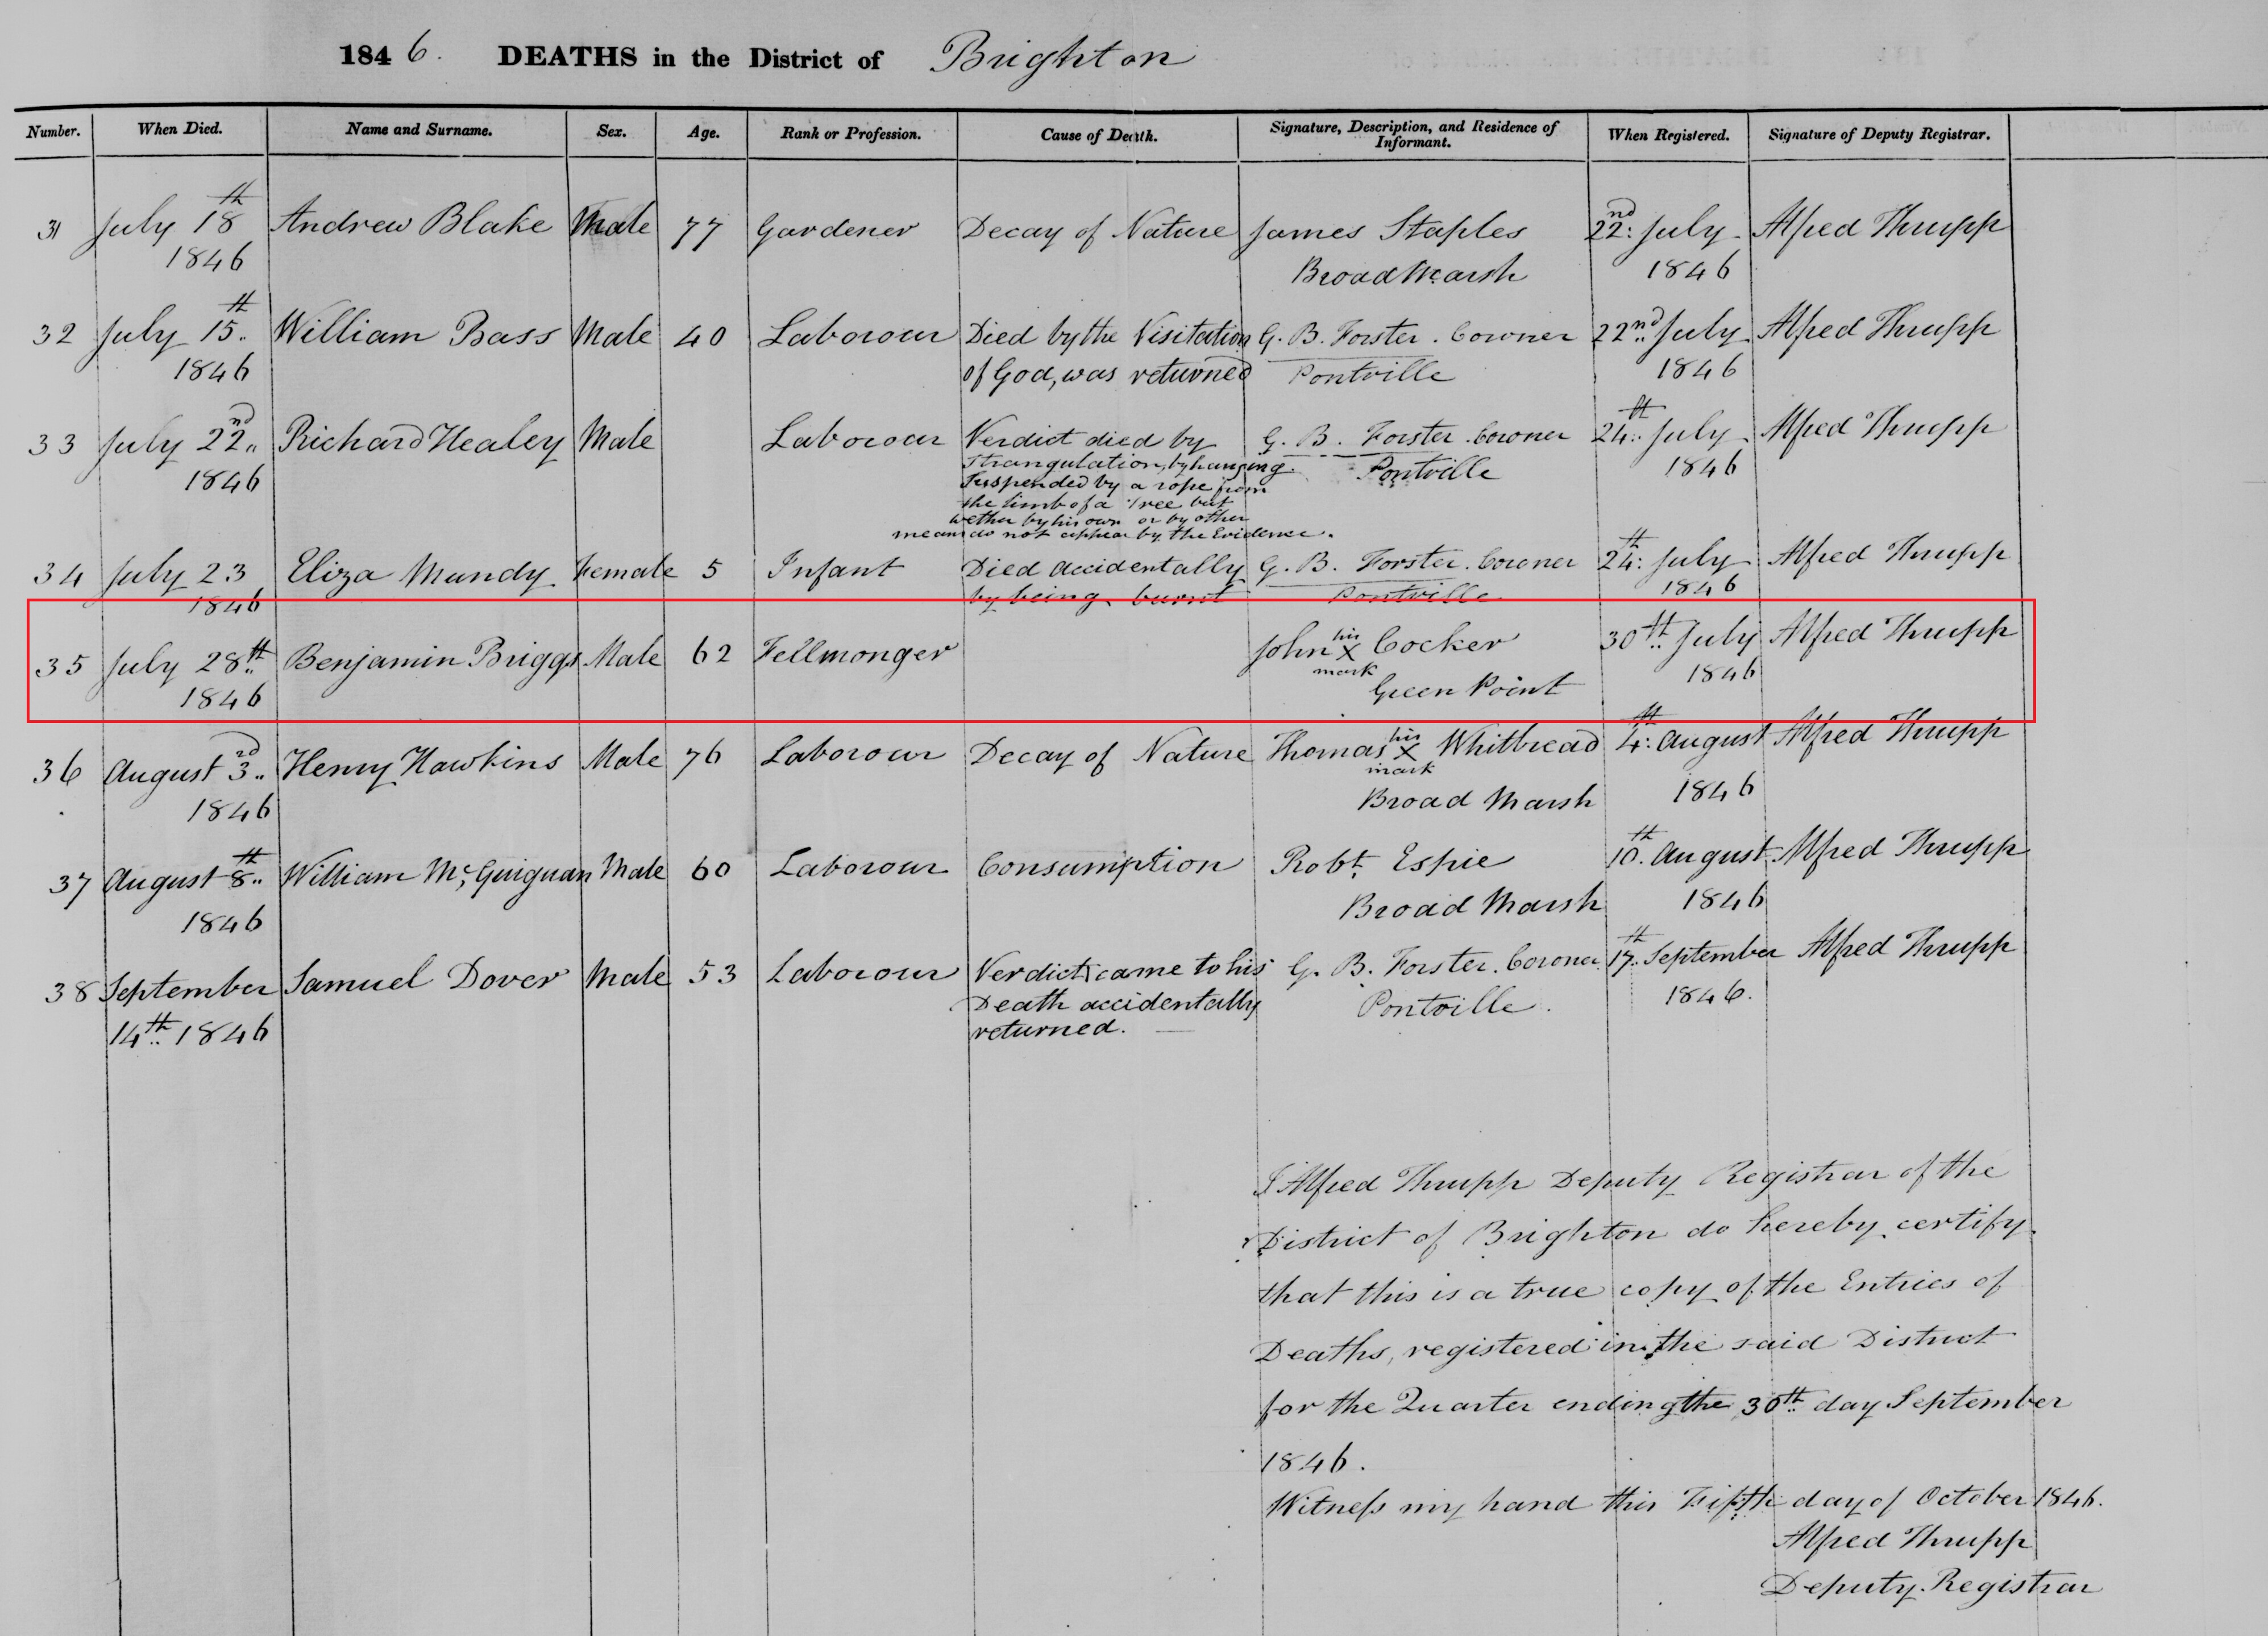 1846. DEATHS in the District of Brighton
Number. When Died. Name and Surname. Sex. Age. Rank or Profession. Cause of Death. Signature, Description, and Residence of Informant. When Registered. Signature of Deputy Registrar.
31 July 18th Andrew Blake Male 77 Gardener Decay of Nature James Staples 22nd July Alfred Thrupp
1846 Broad Marsh 1846
32 July 15th William Bass Male 40 Laborour Died by the Visitation G. B. Forster. Coroner 22nd July Alfred Thrupp
1846 of God, was returned Pontville 1846
33 July 22nd Richard Healey Male Laborour Verdict died by G. B. Forster. Coroner 24th July Alfred Thrupp
1846 Strangulation, by hanging. Pontville 1846
Suspended by a rope from
the limb of a Tree but
wether by his own or by other
means do not appear by the Evidence.
34 July 23 Eliza Mundy Female 5 Infant Died accidentally G. B. Forster. Coroner 24th July Alfred Thrupp
1846 by being burnt Pontville 1846
35 July 28th Benjamin Briggs Male 62 Fellmonger John his X mark Cocker 30th July Alfred Thrupp
1846 Green Point 1846
36 August 3rd Henry Hawkins Male 76 Laborour Decay of Nature Thomas his X mark Whitbread 4th August Alfred Thrupp
1846 Broad Marsh 1846
37 August 8th William Mc Guignan Male 60 Laborour Consumption Robt. Espie 10th August Alfred Thrupp
1846 Broad Marsh 1846
38 September Samuel Dover Male 53 Laborour Verdict came to his G. B. Forster. Coroner 17th September Alfred Thrupp
14th 1846 Death accidentally Pontville. 1846.
returned.
I Alfred Thrupp Deputy Registrar of the
District of Brighton do hereby certify
that this is a true copy of the Entries of
Deaths, registered in the said District
for the Quarter ending the 30th day September
1846.
Witness my hand this Fifth day of October 1846.
Alfred Thrupp
Deputy Registrar